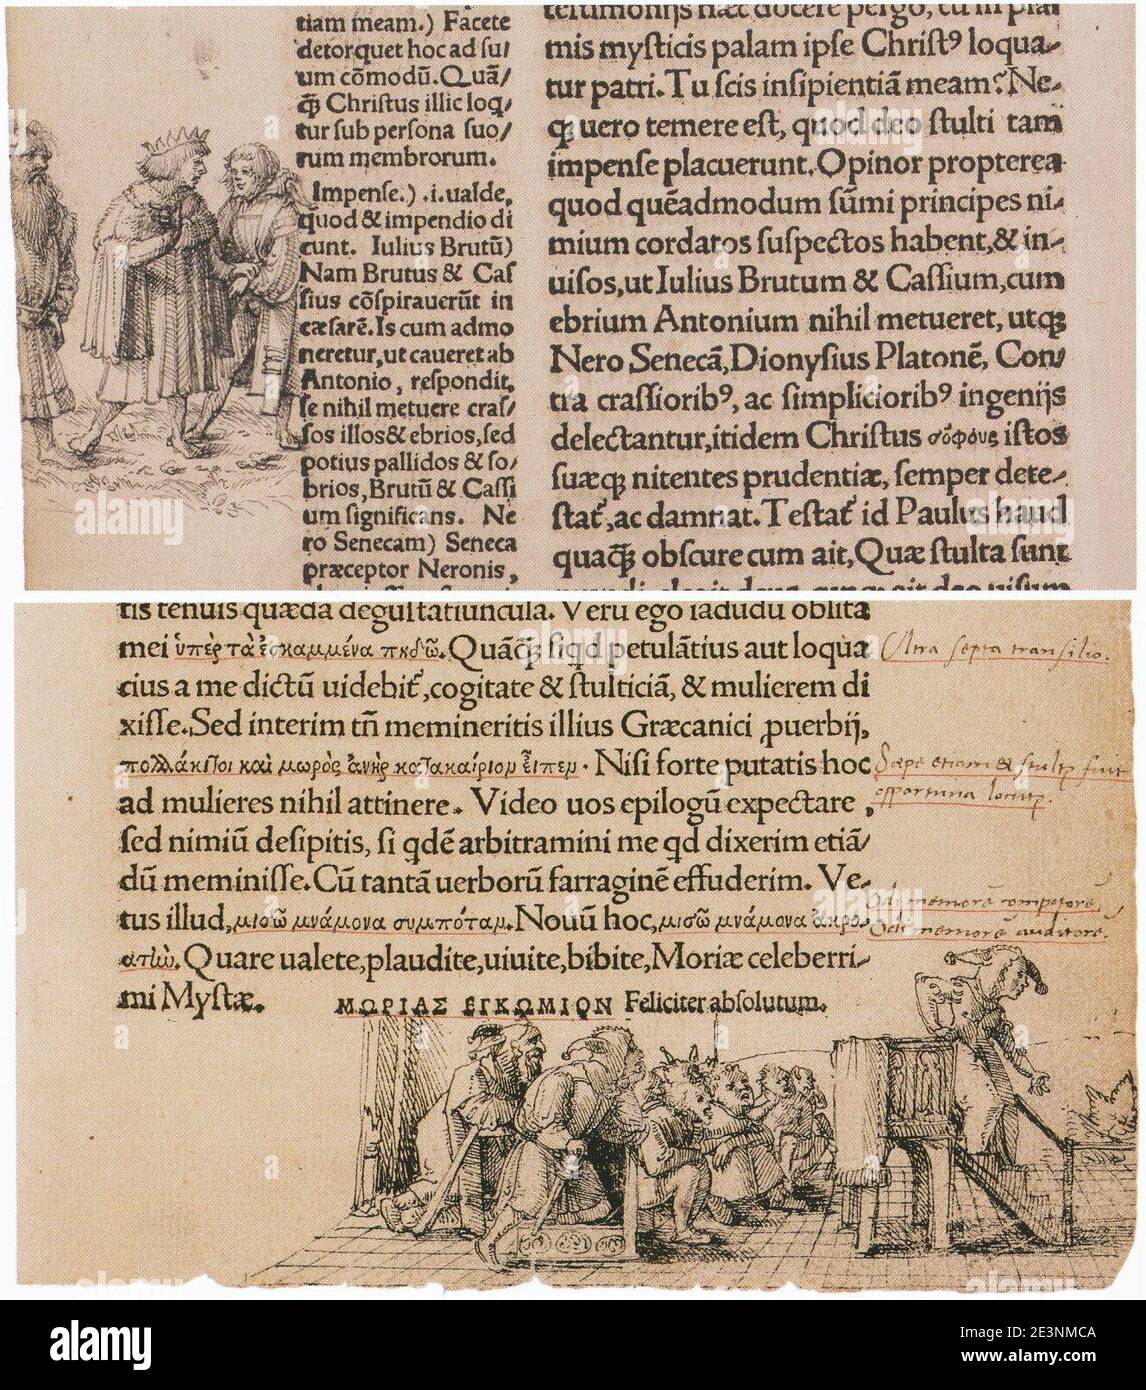 tiam meam.) Facete
detorquet hoc ad su/
um cōmodū. Quā/
q̄ Christus illic loq̄/
tur sub persona suo/
rum membrorum.
Impense.) .i. ualde,
quod & impendio di
cunt. Iulius Brutū)
Nam Brutus & Cas
sius cōspirauerūt in
cæsarē. Is cum admo
neretur, ut caueret ab
Antonio, respondit,
se nihil metuere cras/
sos illos & ebrios, sed
potius pallidos & so/
brios, Brutū & Cassi
um significans. Ne
ro Senecam) Seneca
præceptor Neronis,
testimonijs hæc docere pergo, cū in psal
mis mysticis palam ipse Christꝰ loqua-
tur patri. Tu scis insipientiā meam? Ne-
q; uero temere est, quod deo stulti tam
impense placuerunt. Opinor propterea
quod quēadmodum sūmi principes ni-
mium cordatos suspectos habent, & in-
uisos, ut Iulius Brutum & Cassium, cum
ebrium Antonium nihil metueret, utq;
Nero Senecā, Dionysius Platonē, Con/
tra crassioribꝰ, ac simplicioribꝰ ingenijs
delectantur, itidem Christus σοφοὺς istos
suæq; nitentes prudentiæ, semper dete-
stat̄, ac damnat. Testat̄ id Paulus haud
quaq̄ obscure cum ait, Quæ stulta sunt
tis tenuis quæda degustatiuncula. Verū ego iādudū oblita
mei ὑπὲρ τὰ ἐσκαμμένα πηδῶ. Quāq̄ siqd petulātius aut loqua
cius a me dictū uidebit̄, cogitate & stulticiā, & mulierem di
xisse. Sed interim tn̄ memineritis illius Græcanici ꝓuerbij,
πολλάκι τοι καὶ μωρὸς ἀνὴρ κατακαίριον εἶπεν. Nisi forte putatis hoc
ad mulieres nihil attinere. Video uos epilogū expectare,
sed nimiū desipitis, si qdē arbitramini me qd dixerim etiā/
dū meminisse. Cū tantā uerborū farraginē effuderim. Ve-
tus illud, μισῶ μνάμονα συμπόταν. Nouū hoc, μισῶ μνάμονα ἀκρο-
ατὴν. Quare ualete, plaudite, uiuite, bibite, Moriæ celeberri-
mi Mystæ.
ΜΩΡΙΑΣ ΕΓΚΩΜΙΟΝ Feliciter absolutum.
Ultra septa transilio.
Sæpe etiam est stultus fuit
opportuna locutus.
Odi memorē compotorē,
Odi memorē auditorē.
alamy
Image ID: 2E3NMCA
www.alamy.com